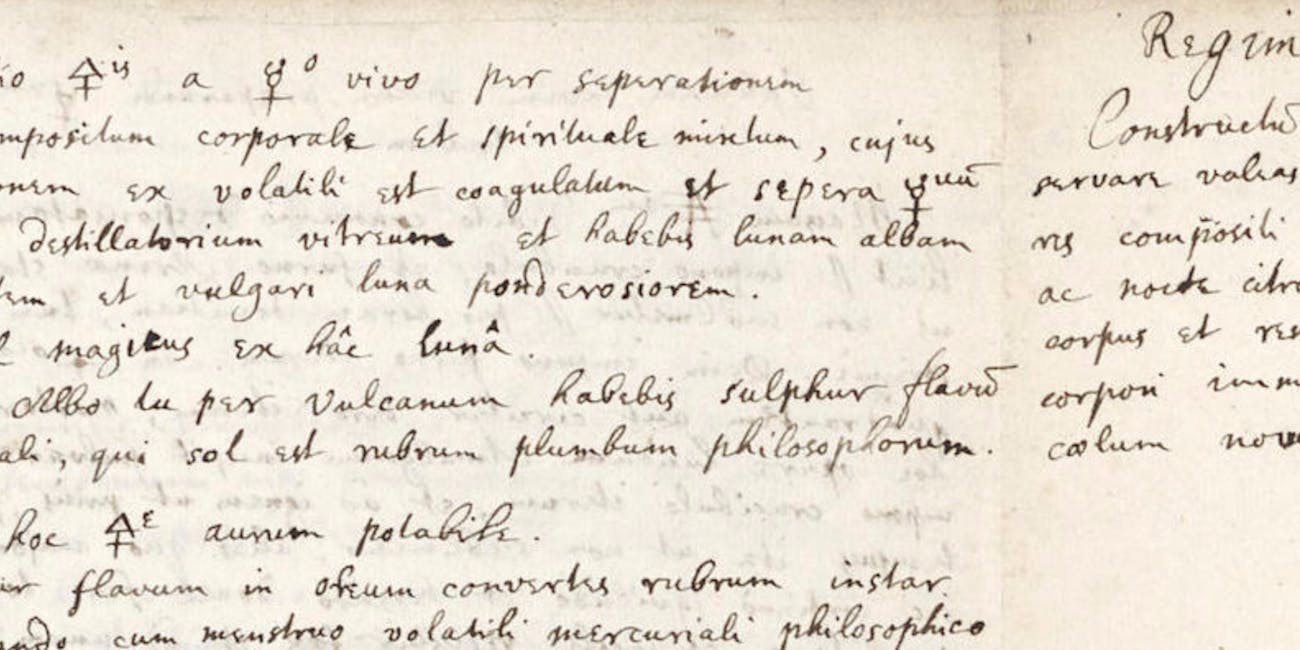 🜍is a ☿o vivo per seperationem
mpositum corporale et spirituale mixtum, cujus
onem ex volatili est coagulatum et sepera ☿uū
destillatorium vitreum et habebis lunam albam
tem et vulgari luna ponderosiorem.
magicus ex hâc lunâ.
Albo tu per Vulcanum habebis sulphur flavū
ali, qui sol est rubrum plumbum philosophorum.
hoc 🜍e aurum potabile.
ur flavum in oleum convertes rubrum instar
ando cum menstruo volatili mercuriali philosophico
Regim
Constructū
servare valeas
ris compositi
ac nocte citra
corpus et res
corpori imm
cœlum nov